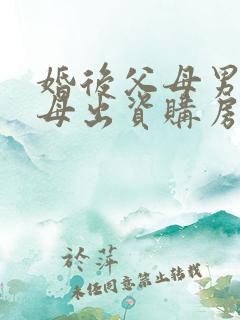 婚後父母男
母出資購房
於萍
未经同意禁止转载